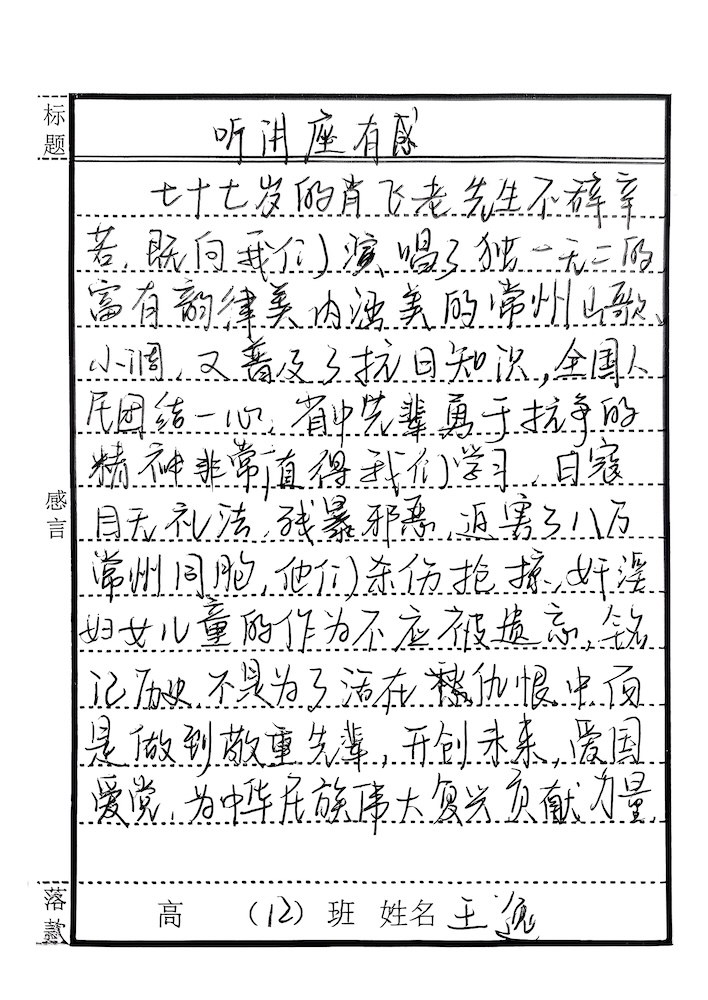 标题
听讲座有感
七十七岁的肖飞老先生不辞辛
苦，既向我们演唱了独一无二的
富有韵律美内涵美的常州山歌、
小调，又普及了抗日知识，全国人
民团结一心，省中先辈勇于抗争的
精神非常值得我们学习，日寇
目无礼法，残暴邪恶，迫害了八万
常州同胞，他们杀伤抢掠、奸淫
妇女儿童的作为不应被遗忘，铭
记历史，不是为了活在仇恨中，而
是做到敬重先辈，开创未来，爱国
爱党，为中华民族伟大复兴贡献力量，
感言
落款
高 （12）班 姓名 王逸